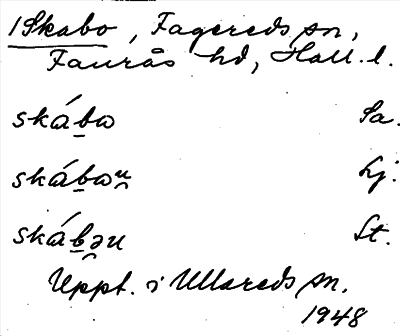 1 Skabo, Fagereds sn,
Faurås hd, Hall. l.
skába Sa.
skábau̯ Lj.
skábəu St.
Uppt. i Ullareds sn.
1948